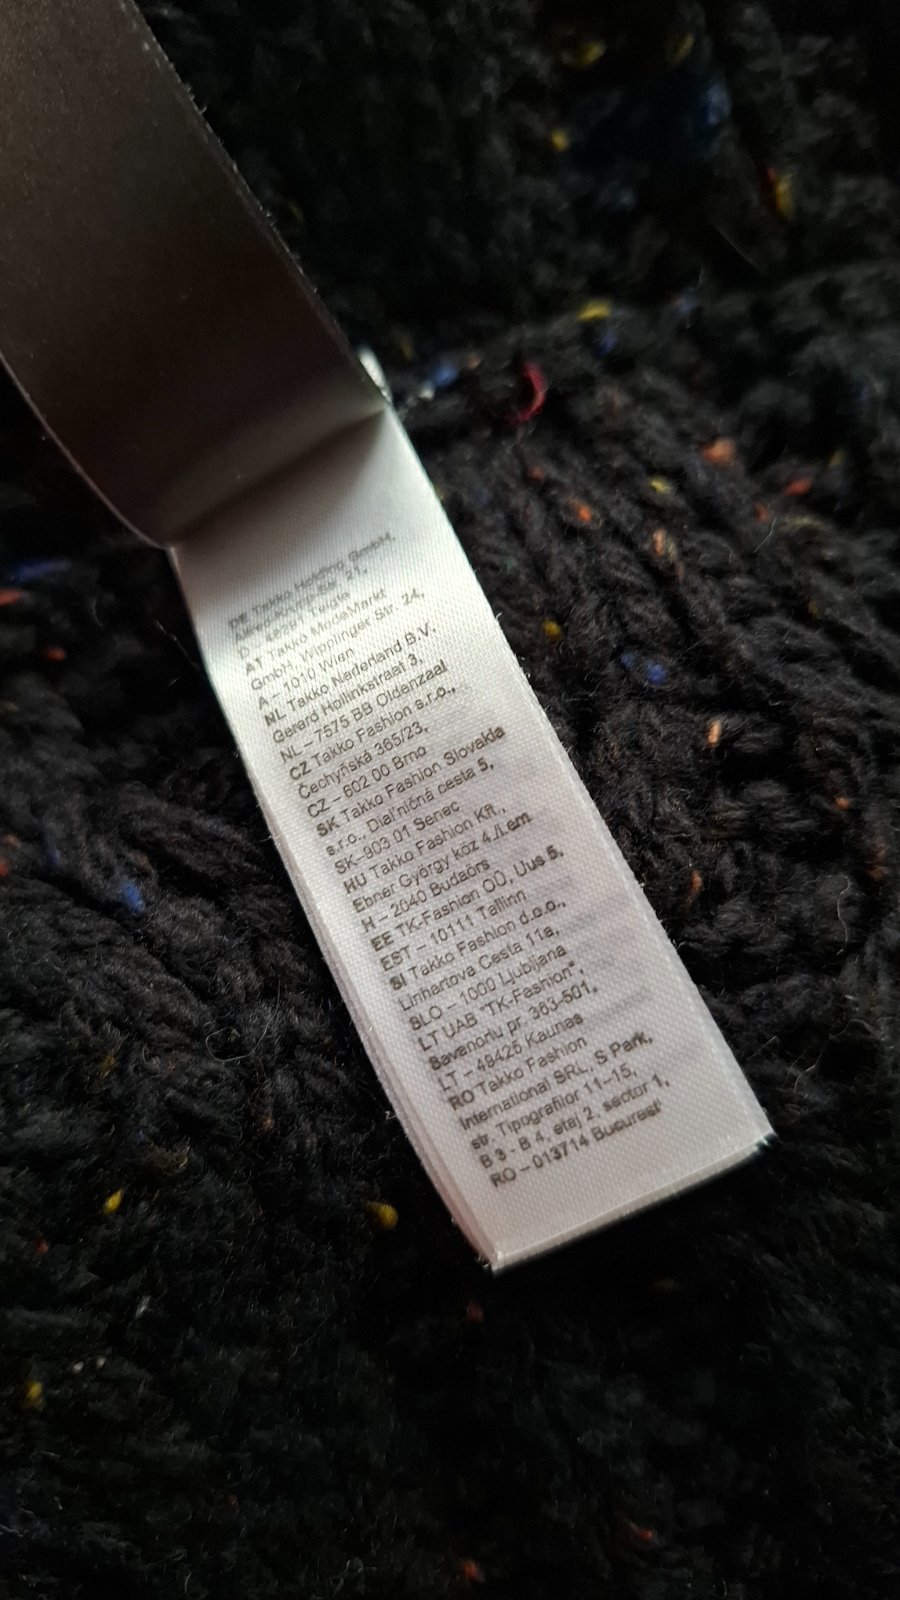 DE Takko Holding GmbH,
Alfred-Krupp-Str. 21,
D – 48291 Telgte
AT Takko ModeMarkt
GmbH, Wipplinger Str. 24,
A – 1010 Wien
NL Takko Nederland B.V.
Gerard Hollinkstraat 3,
NL – 7575 BB Oldenzaal
CZ Takko Fashion s.r.o.,
Čechyňská 365/23,
CZ – 602 00 Brno
SK Takko Fashion Slovakia
s.r.o., Diaľničná cesta 5,
SK–903 01 Senec
HU Takko Fashion Kft.,
Ebner György köz 4./I.em
H – 2040 Budaörs
EE TK-Fashion OÜ, Uus 5,
EST – 10111 Tallinn
SI Takko Fashion d.o.o.,
Linhartova Cesta 11a,
SLO – 1000 Ljubljana
LT UAB "TK-Fashion",
Savanoriu pr. 363-501,
LT – 49425 Kaunas
RO Takko Fashion
International SRL, S Park,
str. Tipografilor 11–15,
B 3 - B 4, etaj 2, sector 1,
RO – 013714 Bucuresti